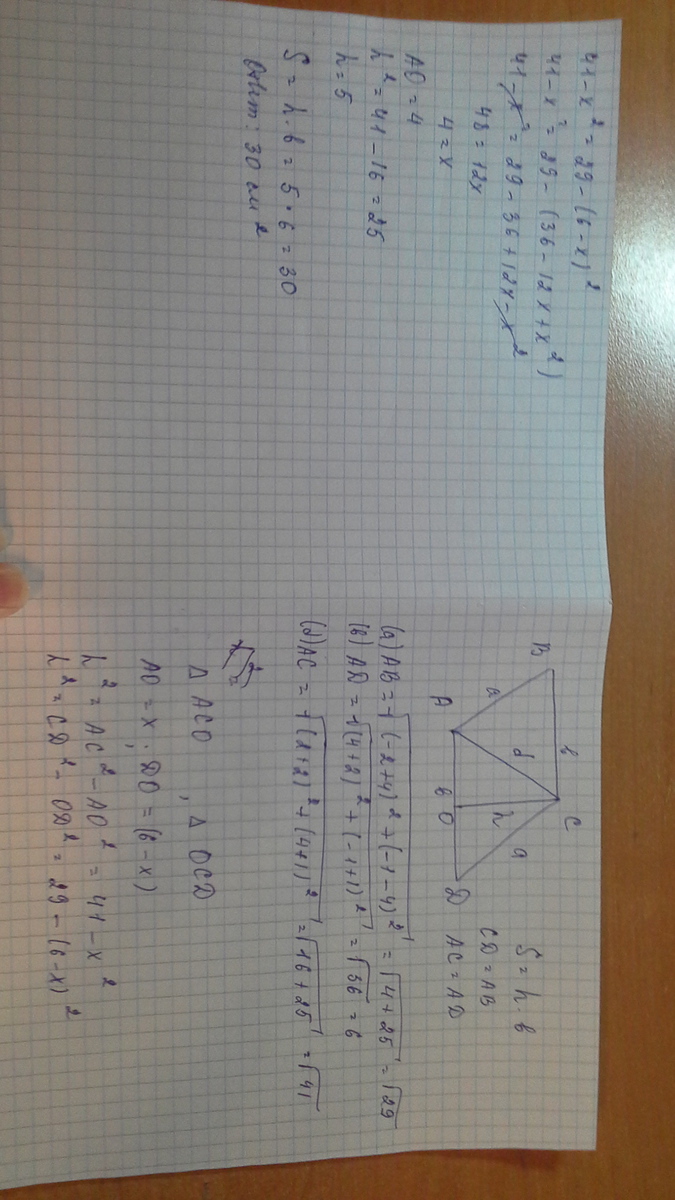 B
в
C
a
d
h
a
A
в
O
D
S = h · в
CD = AB
AC = AD
(a) AB = √(-2+4)² + (-1-4)² = √4+25 = √29
(в) AD = √(4+2)² + (-1+1)² = √36 = 6
(d) AC = √(2+2)² + (4+1)² = √16+25 = √41
△ ACO , △ OCD
AO = x ; DO = (6-x)
h² = AC² - AO² = 41 - x²
h² = CD² - OD² = 29 - (6-x)²
41 - x² = 29 - (6-x)²
41 - x² = 29 - (36 - 12x + x²)
41 - x² = 29 - 36 + 12x - x²
48 = 12x
4 = x
AO = 4
h² = 41 - 16 = 25
h = 5
S = h · в = 5 · 6 = 30
Ответ: 30 см²